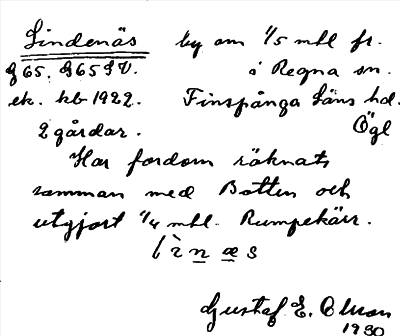 Lindenäs by om 1/5 mtl fr.
f 65. J65 SV. i Regna sn.
ek. kb 1922. Finspånga läns hd.
2 gårdar. Ögl
Har fordom räknats
samman med Botten och
utgjort 1/4 mtl. Rumpekärr.
Gustaf E. Olsson
1930